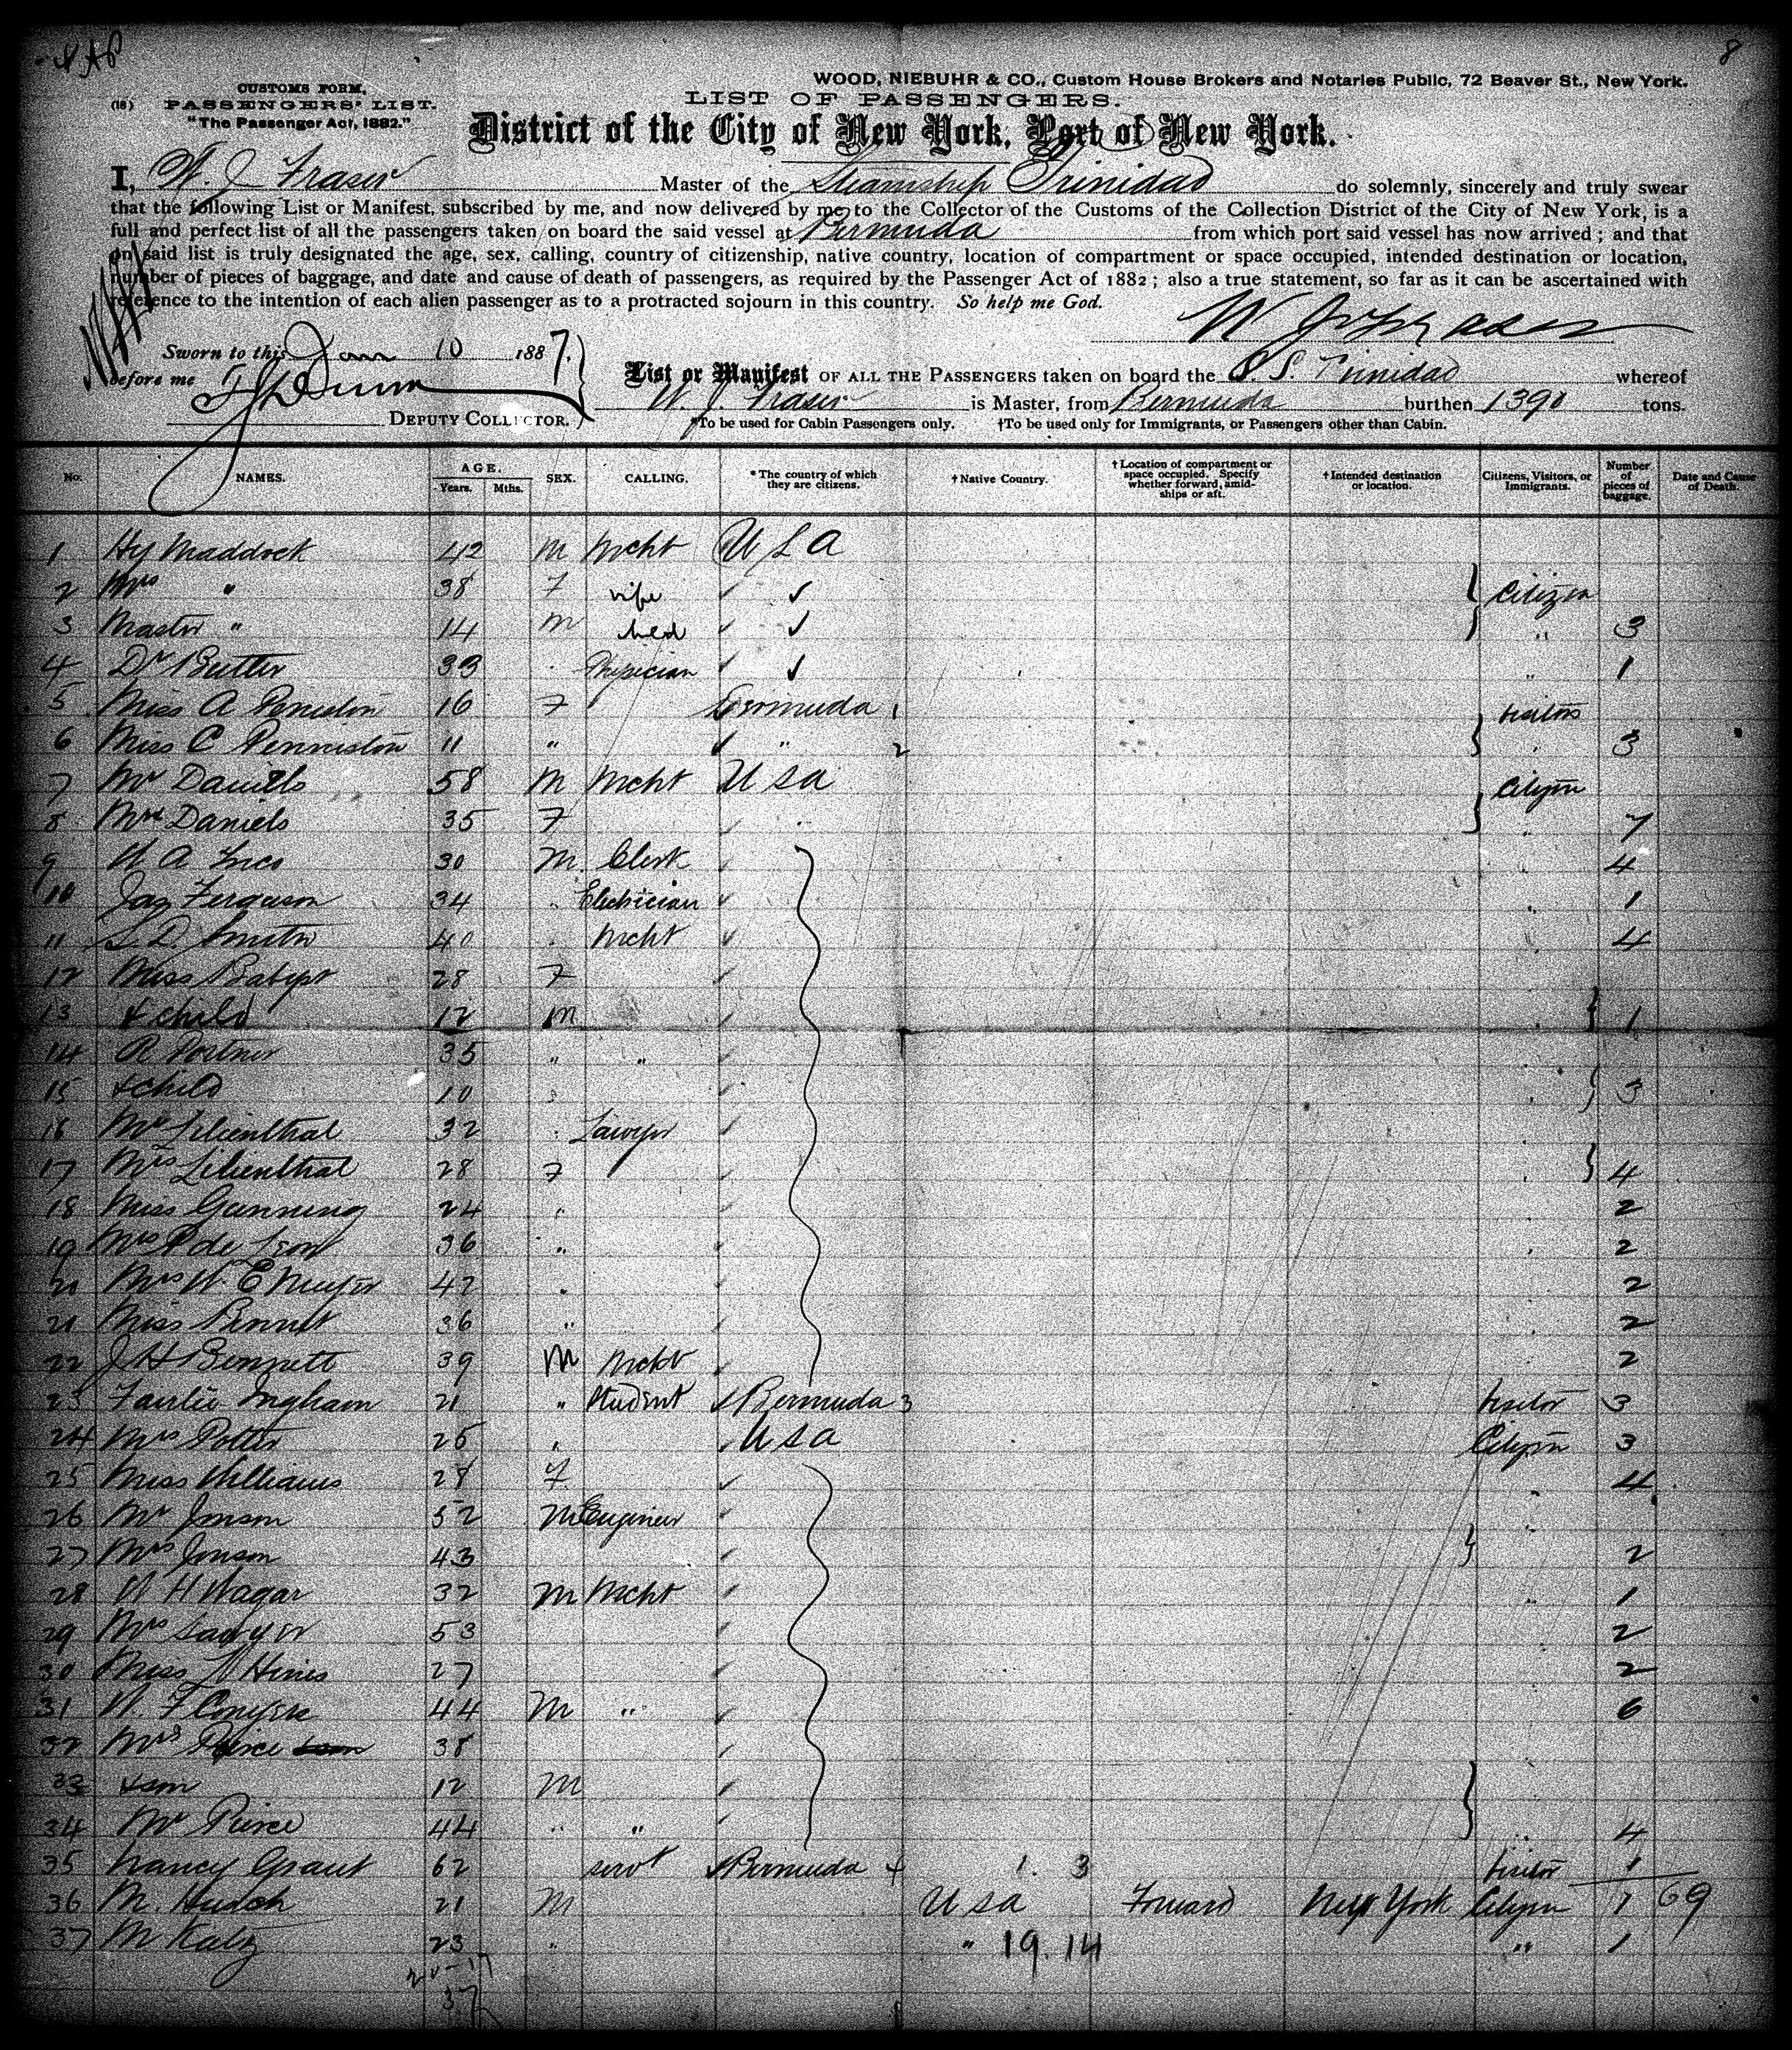 8
WOOD, NIEBUHR & CO., Custom House Brokers and Notaries Public, 72 Beaver St., New York.
CUSTOMS FORM.
(18) PASSENGERS' LIST.
"The Passenger Act, 1882."
LIST OF PASSENGERS.
District of the City of New York, Port of New York.
I, W. J. Fraser Master of the Steamship Trinidad do solemnly, sincerely and truly swear
that the following List or Manifest, subscribed by me, and now delivered by me to the Collector of the Customs of the Collection District of the City of New York, is a
full and perfect list of all the passengers taken on board the said vessel at Bermuda from which port said vessel has now arrived; and that
on said list is truly designated the age, sex, calling, country of citizenship, native country, location of compartment or space occupied, intended destination or location,
number of pieces of baggage, and date and cause of death of passengers, as required by the Passenger Act of 1882; also a true statement, so far as it can be ascertained with
reference to the intention of each alien passenger as to a protracted sojourn in this country. So help me God.
W J Fraser
Sworn to this Jan 10 1887.
before me
DEPUTY COLLECTOR.
List or Manifest OF ALL THE PASSENGERS taken on board the S. S. Trinidad whereof
W. J. Fraser is Master, from Bermuda burthen 1390 tons.
*To be used for Cabin Passengers only. †To be used only for Immigrants, or Passengers other than Cabin.
No. NAMES. AGE. Years. Mths. SEX. CALLING. *The country of which they are citizens. †Native Country. †Location of compartment or space occupied. Specify whether forward, amidships or aft. †Intended destination or location. Citizens, Visitors, or Immigrants. Number of pieces of baggage. Date and Cause of Death.
1 Hy Maddock 42 M Mcht U S A
2 Mrs " 38 F wife ✓ ✓ Citizen
3 Master " 14 M ✓ ✓ " 3
4 Dr Butler 33 Physician ✓ ✓ " 1
5 Miss A Peniston 16 F Bermuda 1 Visitors
6 Miss C Penniston 11 " ✓ " 2 3
7 Mr Daniels 58 M Mcht U S A Citizen
8 Mrs Daniels 35 F " 7
9 30 M Clerk 4
10 Jas Ferguson 34 Electrician ✓ " 1
11 S. D. Smith 40 Mcht ✓ 4
12 Miss 28 F
13 & child 12 M 1
14 R Portner 35 " "
15 & child 10 3
16 Mr Lilienthal 32 Lawyer
17 Mrs Lilienthal 28 F 4
18 Miss Gunning 24 " 2
19 Mrs P de Leon 36 " 2
20 Mrs W. E Meyer 42 2
21 Miss Bennett 36 " 2
22 J H Bennett 39 M Mcht 2
23 Fairlie Ingham 21 " Student ✓ Bermuda 3 Visitor 3
24 Mrs Potter 25 " ✓ U S A Citizen 3
25 Miss Williams 28 F ✓ 4
26 Mr Jonson 52 M Engineer
27 Mrs Jonson 43 2
28 W H Wagar 32 M Mcht " 1
29 Mrs Sawyer 53 2
30 Miss Hines 27 2
31 W. F Conyers 44 M " 6
32 Mrs Pierce 38
33 & son 12 M
34 Mr Pierce 44 " " 4
35 Nancy Grant 62 servt ✓ Bermuda 4 1. 3 Visitor 1
36 M. 21 M U S A Forward New York Citizen 1 69
37 M Katz 23 " " 19. 14 " 1
37